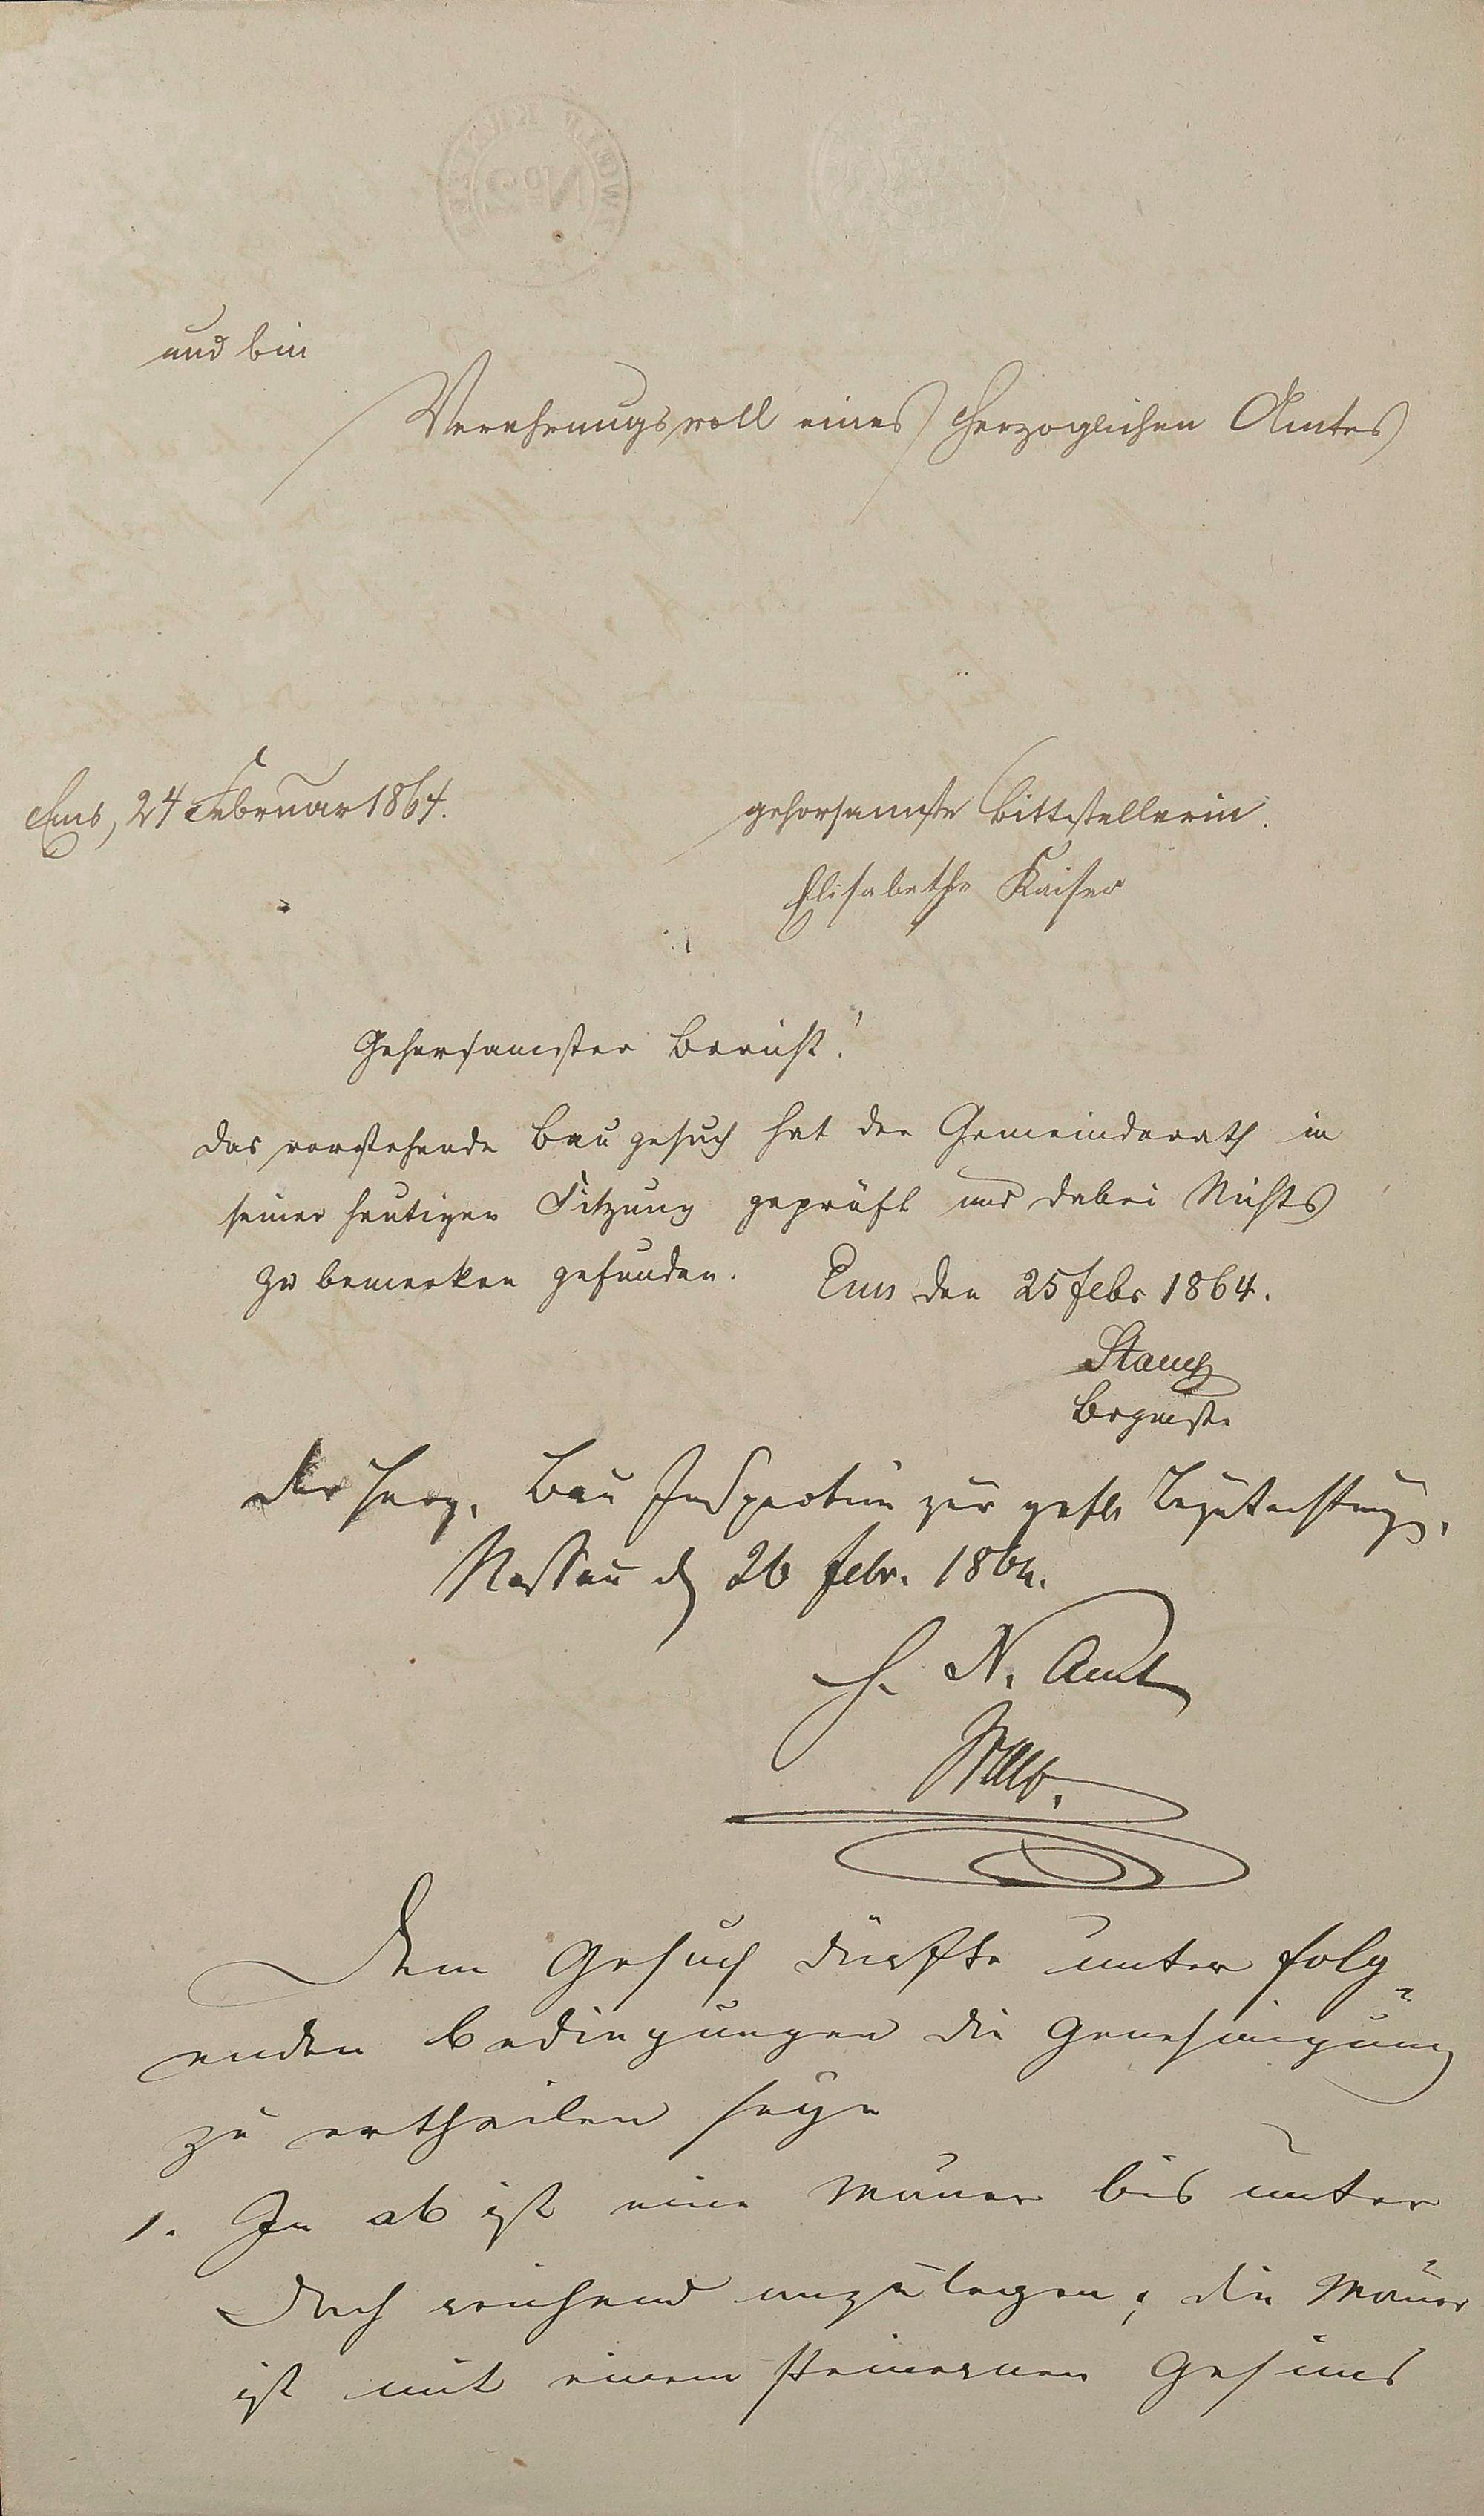 und bin
Verehrungsvoll eines Herzoglichen Amtes
Ems, 24 Februar 1864.
gehorsamste Bittstellerin.
Elisabethe Kaiser
Gehorsamster Bericht!
Das vorstehende Baugesuch hat der Gemeinderath in
seiner heutigen Sitzung geprüft und dabei Nichts
zu bemerken gefunden. Ems den 25 Febr 1864.
Brgmstr
Der Herz. Bau Inspection zur gefll Begutachtung.
Nassau d 26 Febr. 1864.
H. N. Amt
Dem Gesuch dürfte unter folg-
enden Bedingungen die Genehmigung
zu ertheilen seyn
1. In ab ist eine Mauer bis unter
Dach reichend anzulegen; die Mauer
ist mit einem steinernen Gesims